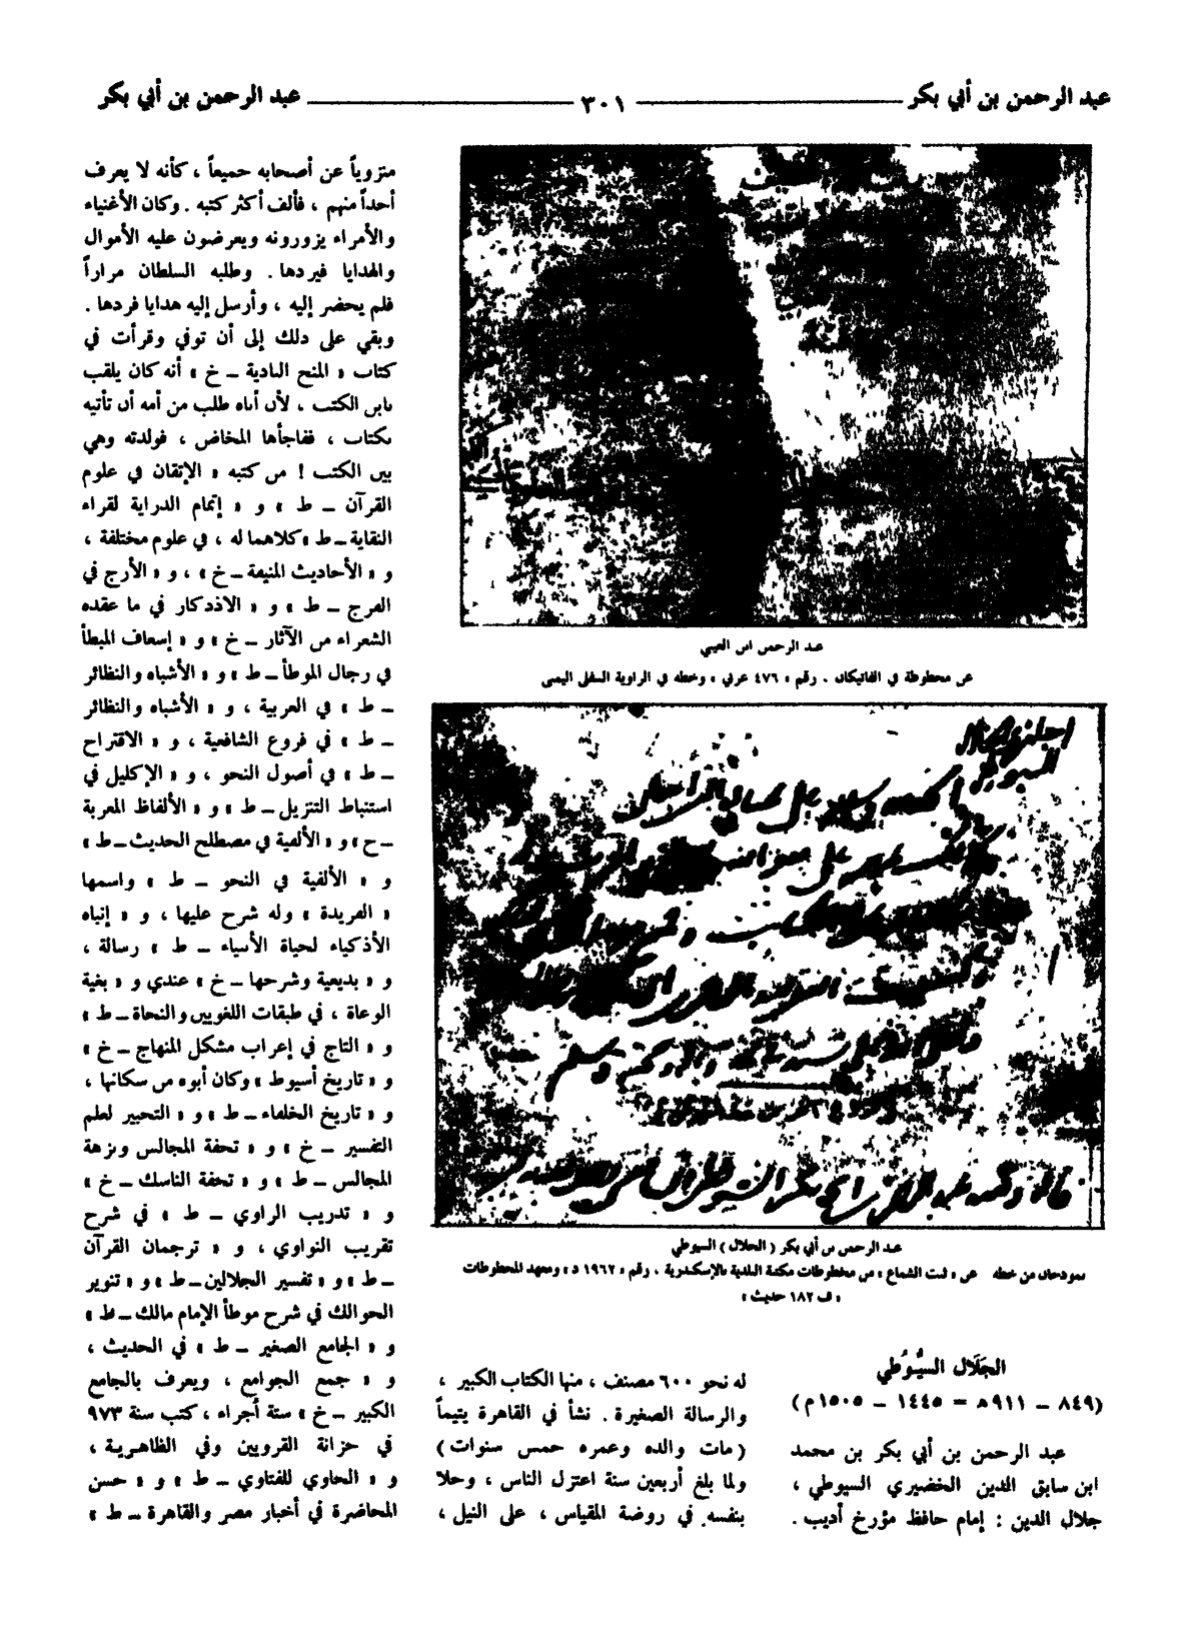 عبد الرحمن بن أبي بكر ـــــ ٣٠١ ـــــ عبد الرحمن بن أبي بكر
عبد الرحمن ابن العيني
عن مخطوطة في الفاتيكان . رقم « ٤٧٦ عربي » وخطه في الزاوية السفلى اليمنى
عبد الرحمن بن أبي بكر ( الجلال ) السيوطي
نموذجان من خطه عن « ثبت الشماع » من مخطوطات مكتبة البلدية بالإسكندرية . رقم « ١٩٦٢ د » ومعهد المخطوطات
« ف ١٨٢ حديث »
الجَلَال السُّيُوُطي
(٨٤٩ ــ ٩١١ هـ = ١٤٤٥ ــ ١٥٠٥ م)
عبد الرحمن بن أبي بكر بن محمد
ابن سابق الدين الخضيري السيوطي ،
جلال الدين : إمام حافظ مؤرخ أديب .
له نحو ٦٠٠ مصنف ، منها الكتاب الكبير ،
والرسالة الصغيرة . نشأ في القاهرة يتيماً
( مات والده وعمره خمس سنوات )
ولما بلغ أربعين سنة اعتزل الناس ، وخلا
بنفسه في روضة المقياس ، على النيل ،
منزوياً عن أصحابه جميعاً ، كأنه لا يعرف
أحداً منهم ، فألف أكثر كتبه . وكان الأغنياء
والأمراء يزورونه ويعرضون عليه الأموال
والهدايا فيردها . وطلبه السلطان مراراً
فلم يحضر إليه ، وأرسل إليه هدايا فردها .
وبقي على ذلك إلى أن توفي وقرأت في
كتاب « المنح البادية ــ خ » أنه كان يلقب
بابن الكتب ، لأن أباه طلب من أمه أن تأتيه
بكتاب ، ففاجأها المخاض ، فولدته وهي
بين الكتب ! من كتبه « الإتقان في علوم
القرآن ــ ط » و « إتمام الدراية لقراء
النقاية ــ ط » كلاهما له ، في علوم مختلفة ،
و « الأحاديث المنيفة ــ خ » ، و « الأرج في
الفرج ــ ط » و « الاذدكار في ما عقده
الشعراء من الآثار ــ خ » و « إسعاف المبطأ
في رجال الموطأ ــ ط » و « الأشباه والنظائر
ــ ط » في العربية ، و « الأشباه والنظائر
ــ ط » في فروع الشافعية ، و « الاقتراح
ــ ط » في أصول النحو ، و « الإكليل في
استنباط التنزيل ــ ط » و « الألفاظ المعربة
ــ خ » و « الألفية في مصطلح الحديث ــ ط »
و « الألفية في النحو ــ ط » واسمها
« الفريدة » وله شرح عليها ، و « إنباه
الأذكياء لحياة الأنبياء ــ ط » رسالة ،
و « بديعية وشرحها ــ خ » عندي و « بغية
الوعاة ، في طبقات اللغويين والنحاة ــ ط »
و « التاج في إعراب مشكل المنهاج ــ خ »
و « تاريخ أسيوط » وكان أبوه من سكانها ،
و « تاريخ الخلفاء ــ ط » و « التحبير لعلم
التفسير ــ خ » و « تحفة المجالس ونزهة
المجالس ــ ط » و « تحفة الناسك ــ خ »
و « تدريب الراوي ــ ط » في شرح
تقريب النواوي ، و « ترجمان القرآن
ــ ط » و « تفسير الجلالين ــ ط » و « تنوير
الحوالك في شرح موطأ الإمام مالك ــ ط »
و « الجامع الصغير ــ ط » في الحديث ،
و « جمع الجوامع ، ويعرف بالجامع
الكبير ــ خ » ستة أجزاء ، كتب سنة ٩٧٣
في خزانة القرويين وفي الظاهرية ،
و « الحاوي للفتاوي ــ ط » و « حسن
المحاضرة في أخبار مصر والقاهرة ــ ط »